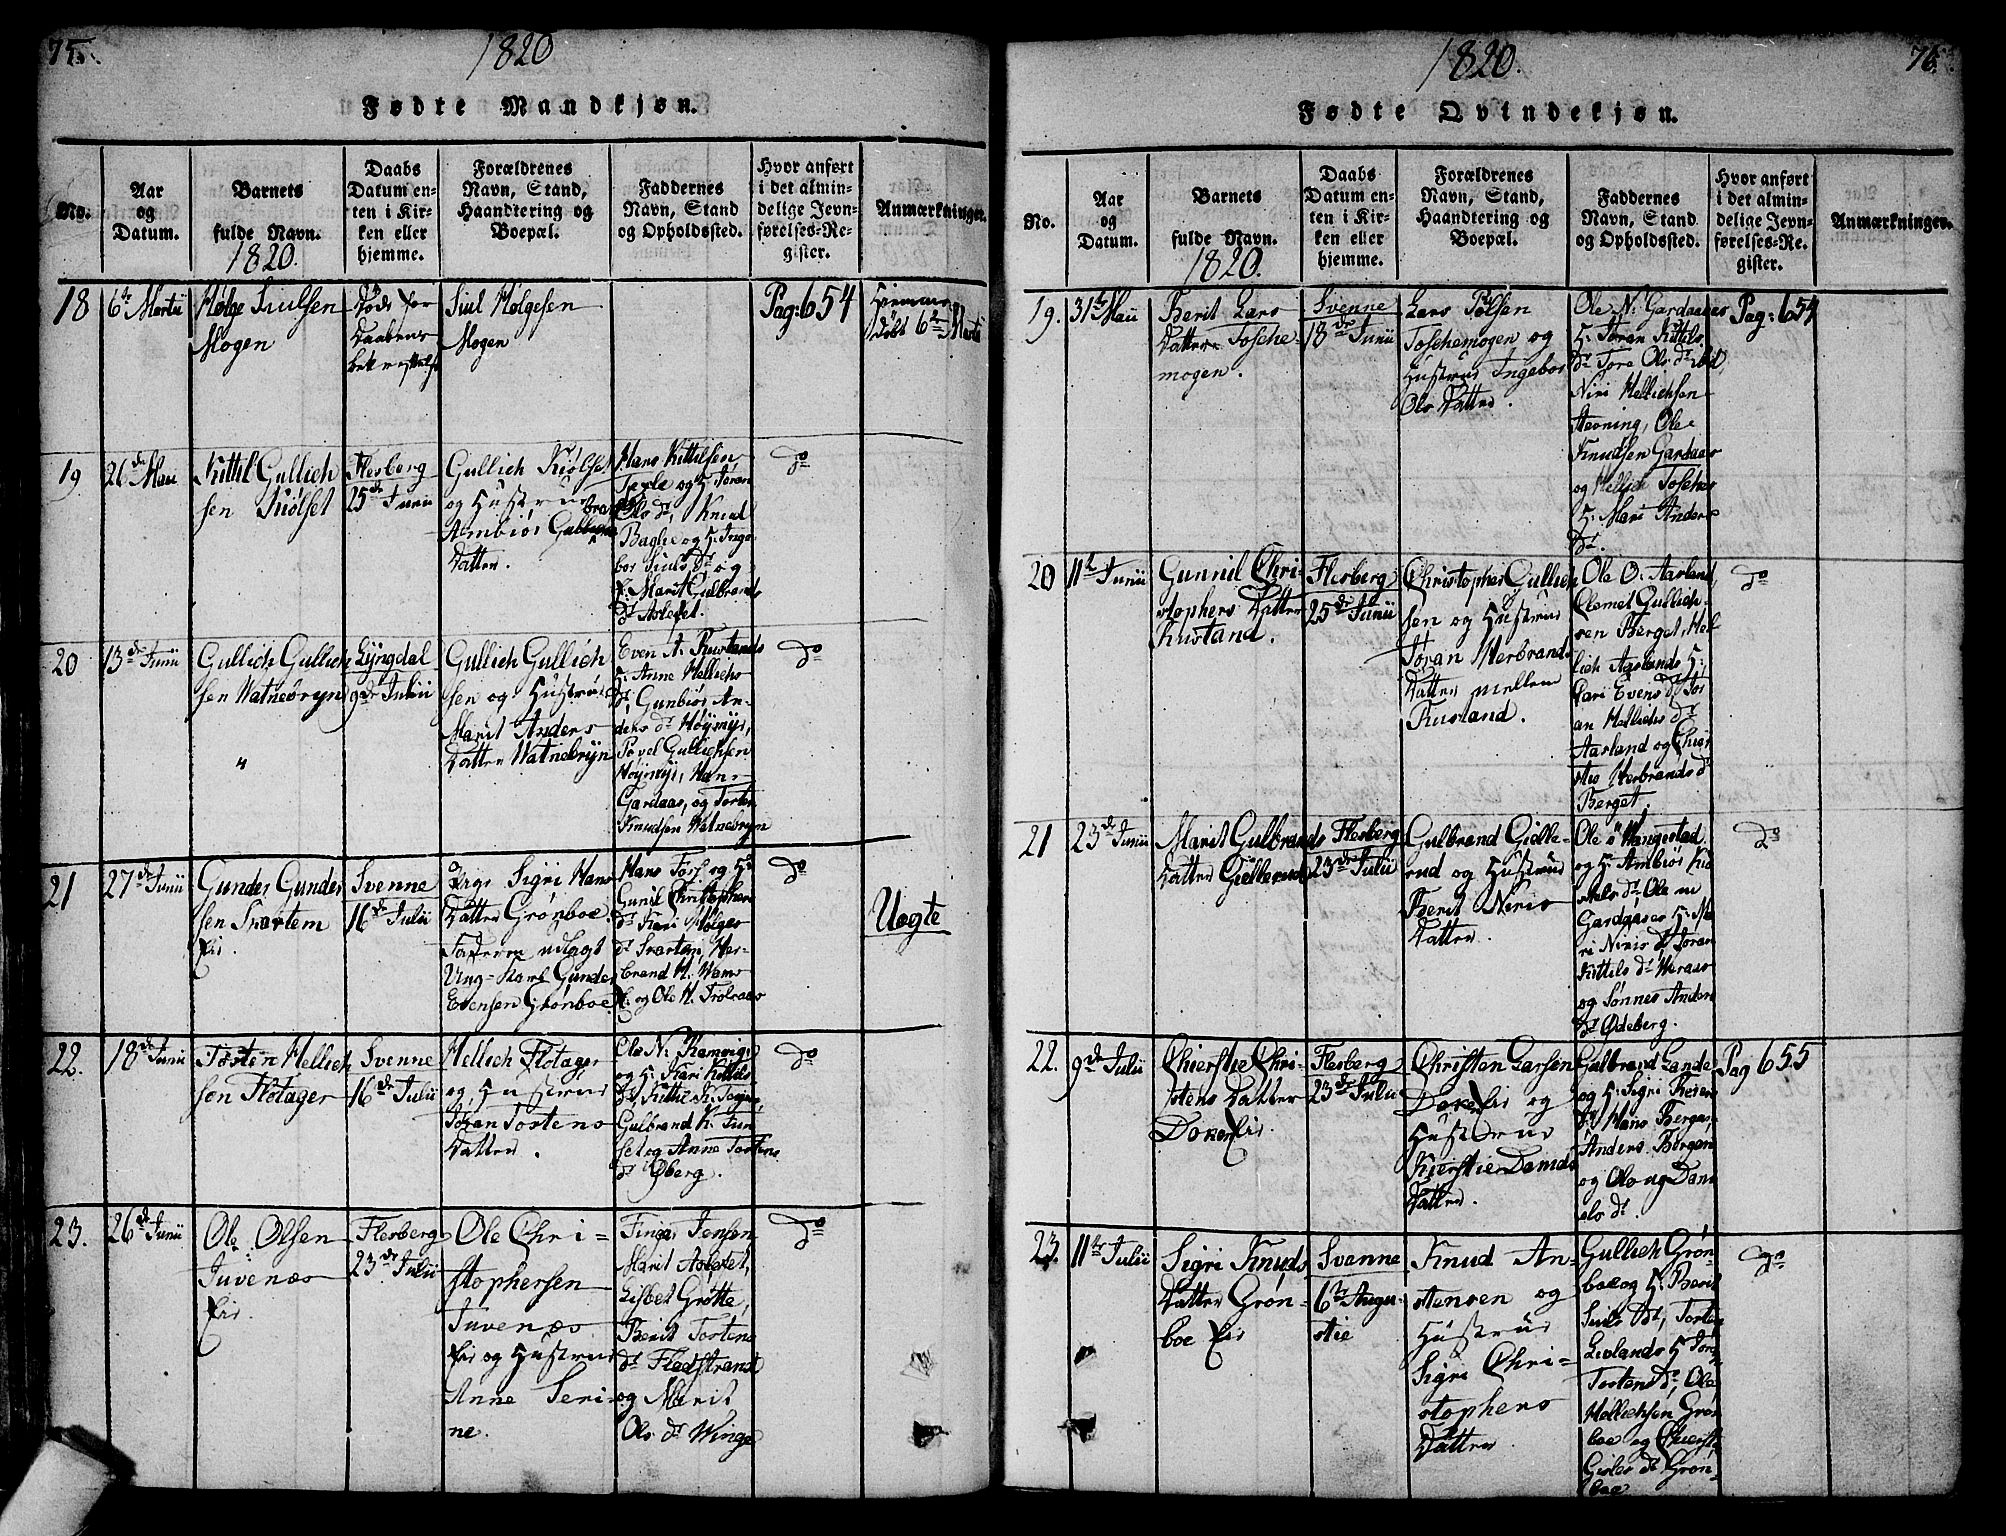 75.
1820
Fødte Mandkjøn.
No.
Aar
og
Datum.
Barnets
fulde Navn.
1820.
Daabs
Datum en-
ten i Kir-
ken eller
hjemme.
Forældrenes
Navn, Stand,
Haandtering og
Boepæl.
Faddernes
Navn, Stand
og Opholdssted.
Hvor anført
i det almin-
delige Jevn-
førelses-Re-
gister.
Anmærkninger.
18
6te Martii
Helge Siulsen
Mogen
Døde for
Daabens
bekræftelse
Siul Helgesen
Mogen
Pag: 654
Hiemme
døbt 6te Martii
19
26de Maii
Kittil Gullich
sen Kiølset
Flesberg
25de Junii
Gullich Kiølset
og Hustrue
Ambiør Gulbrands
Datter.
Hans Kittilsen
og H. Jøran
Ols dr, Knud
Baghe og H. Inge-
bor Siuls dr og
P. Marit Gulbrands
dr Aslefet.
do
20
13de Junii
Gullich Gullich
sen Watnebryn
"
Lyngdal
9de Julii
Gullich Gullich
sen og Hustrue
Marit Anders
Datter Watnebryn
Even A. Rustands
H. Anne Hellichs
dr, Gunbiør An-
ders dr Høymyr,
Povel Gullichsen
Høymyr, Hans
Gardaas, og Torsten
Knudsen Watnebryn
do
21
27de Junii
Gunder Gunder
sen Svartem
Eie.
Svenne
16de Julii
Pige Sigri Hans
Datter Grønboe.
Faderen udlagt
Ung-Karl Gunder
Evensen Grønboe.
Hans Fosf. og H.
Gunil Christophers
dr, Kari Holger
dr Svartem, Her-
brand H. Wams
E. og Ole H. Trolraas
do
Uegte
22.
18de Junii
Torsten Hellich
sen Flotager
Svenne
16de Julii
Hellich Flotager
og Hustrue
Jøran Torstens
Datter.
Ole N. Ramvig,
og H. Kari Kittils
dr, Kittil K.
Gulbrand K. Fun
set og Anne Torstens
dr Øberg.
do
23.
26de Junii
Ole Olsen
Juvenæs
Eie.
Flesberg
23de Julii
Ole Chri-
stophersen
Juvenæs
Eie og Hustrue
Anne Seri-
ne.
Finger Jensen
Marit Aslefet,
Lisbet Grøtte,
Berit Torstens
dr Fladstrand
og Marit
Ols dr Winge
do
76.
1820.
Fødte Qvindekjøn.
No.
Aar
og
Datum.
Barnets
fulde Navn.
1820.
Daabs
Datum en-
ten i Kir-
ken eller
hjemme.
Forældrenes
Navn, Stand,
Haandtering og
Boepæl.
Faddernes
Navn, Stand
og Opholdssted.
Hvor anført
i det almin-
delige Jevn-
førelses-Re-
gister.
Anmærkninger.
19.
31te Maii
Berit Lars
Datter Tosche-
mogen.
Svenne
18de Junii
Lars Pølsen
Toschemogen og
Hustrue Ingebor
Ols Datter.
Ole N. Gardaases
H. Jøran Kittils,
dr Tore Ols dr
Niri Hellichsen
Støvning, Ole
Knudsen Gardaas
og Hellich Tosches
H. Mari Anders
dr.
Pag: 654
20
11te Junii
Gunnil Chri-
stophers Datter
Rustand.
Flesberg
25de Junii
Christopher Gullich
sen og Hustrue
Jøran Herbrands
Datter mellem
Rusland.
Ole O. Aarland,
Clemet Gullich-
sen Berget, Hel
lich Aarlands H.
Kari Evens dr Jør
an Hellichs dr
Aarland og Chier
stie Herbrands dr
Berget.
do
21
23de Junii
Marit Gulbrands
Datter Gislerud
Flesberg
23de Julii
Gulbrand Gisle-
rud og Hustrue
Berit Niris
Datter.
Ole Ø Hangestad
og H. Ambiør Kit
tels dr, Ole m
Gardaases H. Ma
ri Niris dr Jøran
Kittils dr Weraas
og Sønnev Anders
dr Ødeberg.
do
22.
9de Julii
Chierstie Chri-
stens Datter
Dokereie.
Flesberg
23de Julii
Christen Larsen
Dokereie og
Hustrue
Kierstie Daniels
Datter.
Gulbrand Lande
og H. Sigri Iversen
dr, Hans Bergan,
Anders Børgen
og Oloug Dani
els dr.
Pag 655
23.
11te Julii
Sigri Knuds
Datter Grøn-
boe Eie
Svenne
6te Augu-
stie
Knud An-
stensen og
Hustrue
Sigri Chri-
stophers
Datter
Gullich Grøn-
boe og H. Berit
Siuls dr, Torsten
Lislands H. Jøran
Torstens dr, Ole
Hellichsen Grøn
boe og Chiersti
Gisles dr Grøn-
boe
do